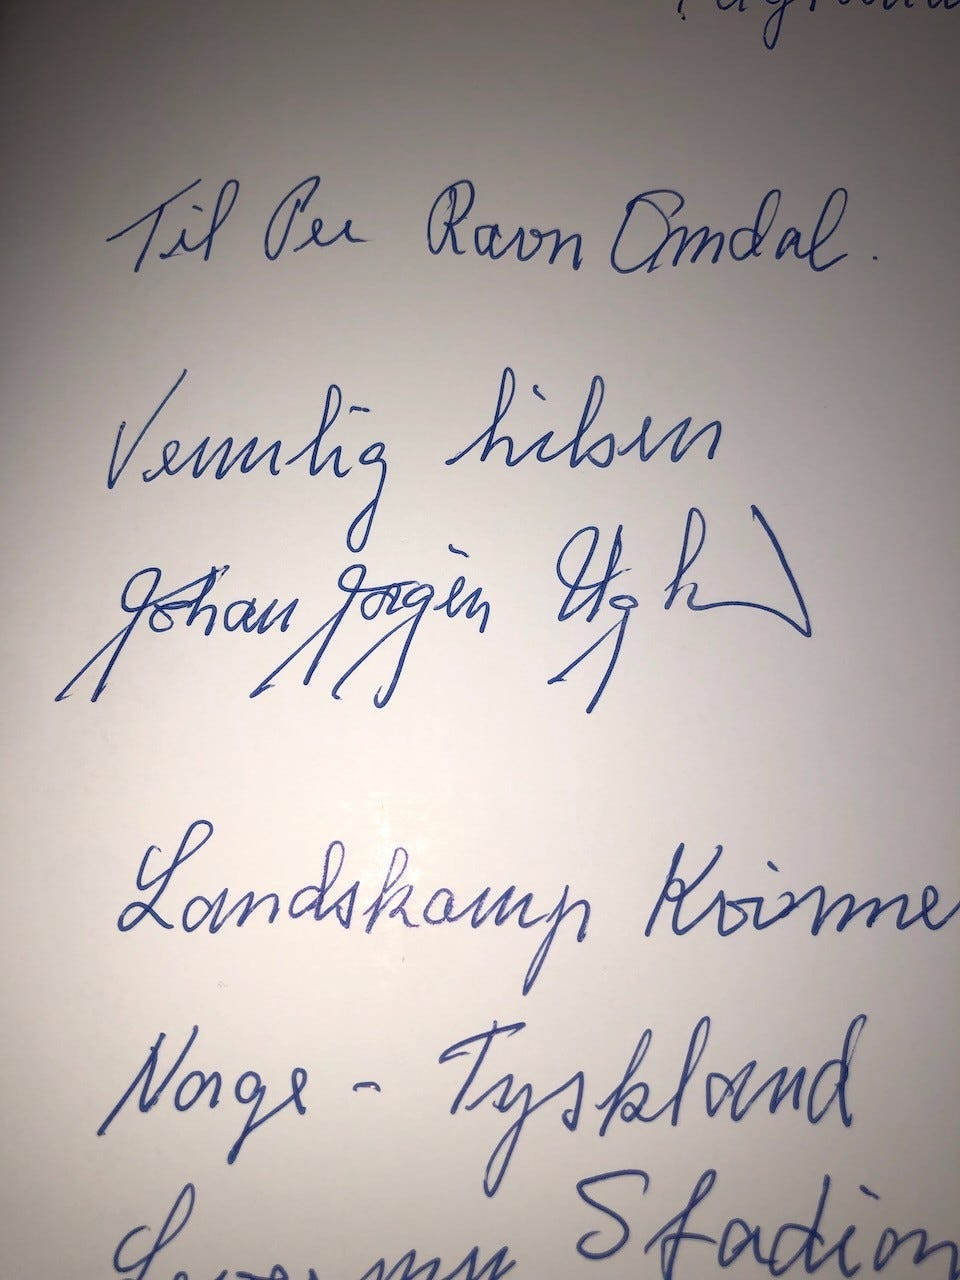 Til Per Ravn Omdal.
Vennlig hilsen
Johan Jørgen
Landskamp Kvinne
Norge - Tyskland
Stadion